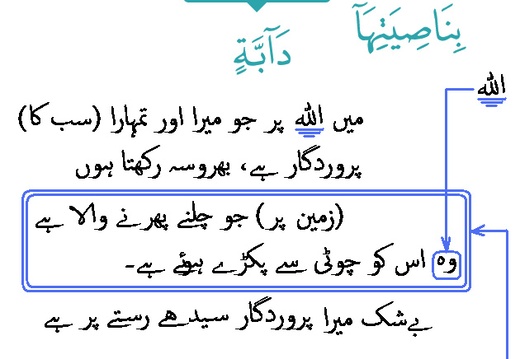 بِنَاصِيَتِهَآ
دَآبَّةٍ
الله
میں الله پر جو میرا اور تمہارا (سب کا)
پروردگار ہے، بھروسہ رکھتا ہوں
(زمین پر) جو چلنے پھرنے والا ہے
وہ اس کو چوٹی سے پکڑے ہوئے ہے۔
بےشک میرا پروردگار سیدھے رستے پر ہے